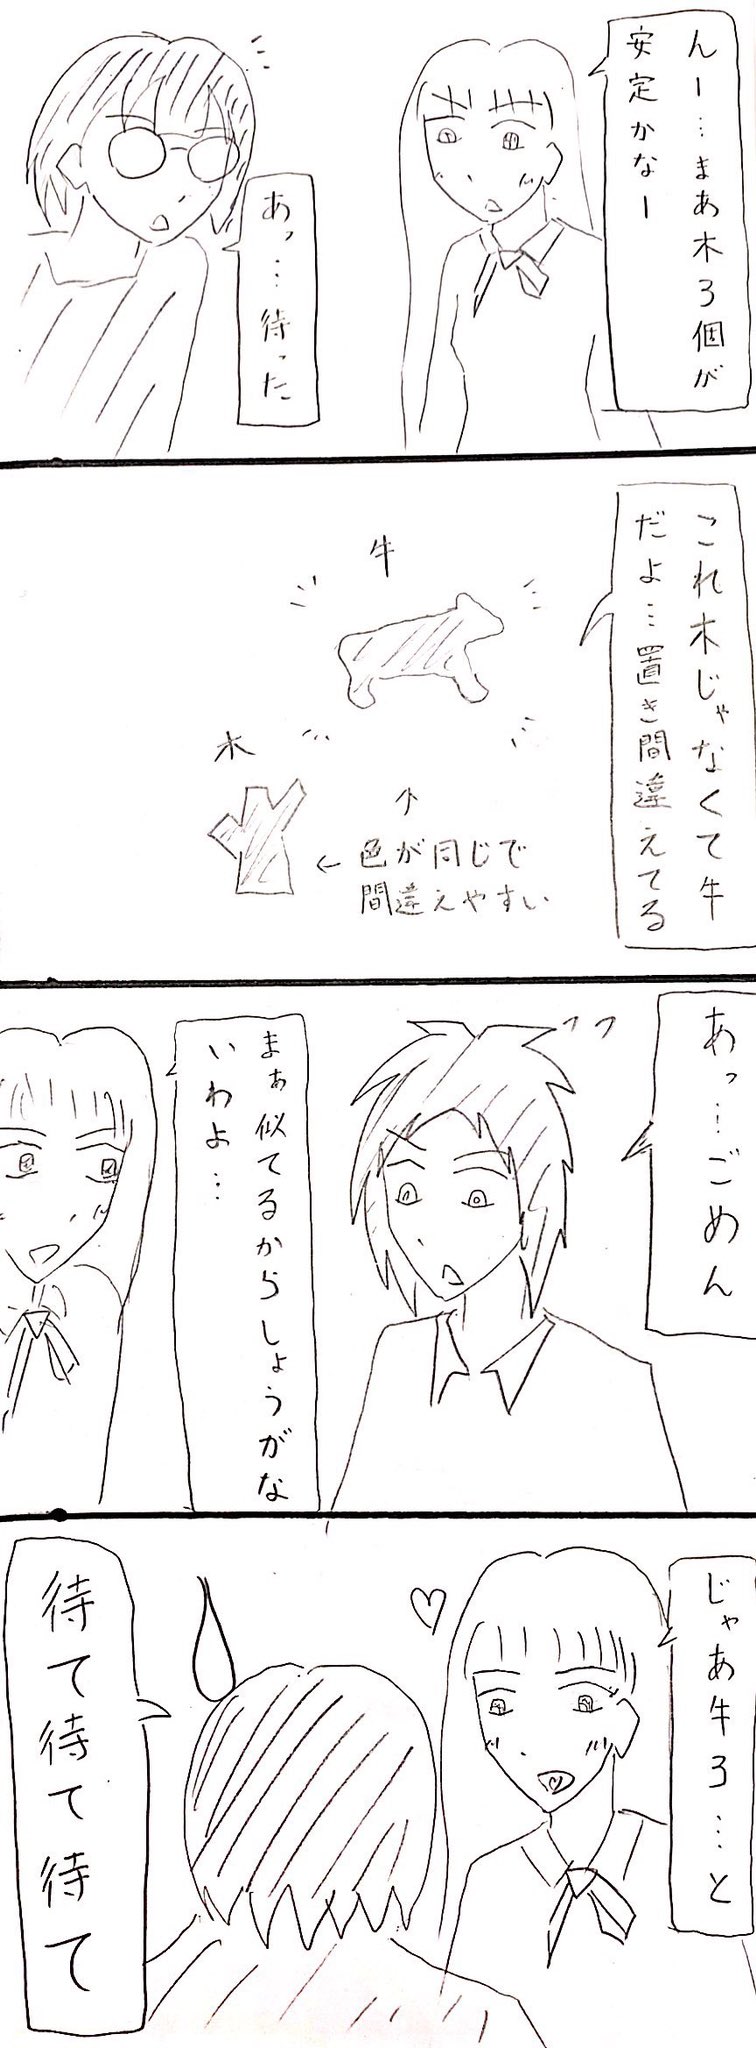 んー…まあ木3個が
安定かなー
あっ…待った
これ木じゃなくて牛
だよ…置き間違えてる
牛
木
↑
←色が同じで
間違えやすい
あっ…ごめん
まぁ似てるからしょうがな
いわよ…
じゃあ牛3…と
待て待て待て